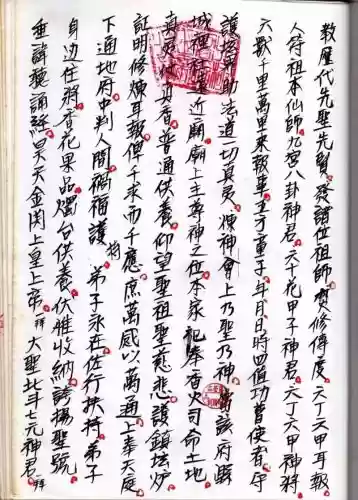 教歷代先聖先賢發諸位祖師焚修傳度六丁六甲耳報
人符祖本仙師九宮八卦神君六十花甲子神君六丁六甲神將
六獸千里萬里來報事玉子童子年月日時四值功曹使者守
護壇助法道一切真灵煉神會上乃聖乃神當該府縣
城裡社近廟廟上主尊神之位本家祀奉香火司命土地
真香普通供養仰望聖祖聖慈悲護鎮坛炉
証明修煉耳報俾千求而千應庶萬感以萬通上奉天庭
下通地府中判人間禍福護將弟子永在佐行扶持弟子
身边住將香花果品燭台供養伏惟收納誇揚聖號
垂諱聽誦經昊天金闕上皇上帝拜大聖北斗七元神君拜